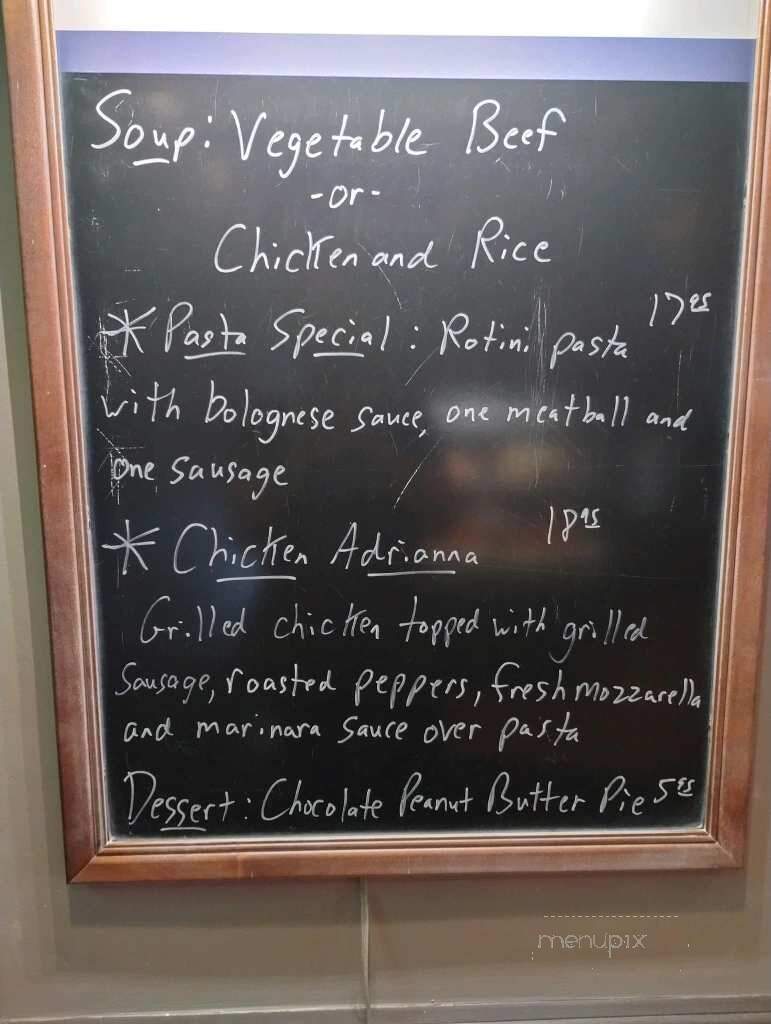 Soup: Vegetable Beef
-or-
Chicken and Rice
* Pasta Special: Rotini pasta 17 95
with bolognese sauce, one meatball and
one sausage
* Chicken Adrianna 18 95
Grilled chicken topped with grilled
sausage, roasted peppers, fresh mozzarella
and marinara sauce over pasta
Dessert: Chocolate Peanut Butter Pie 5 95
menupix